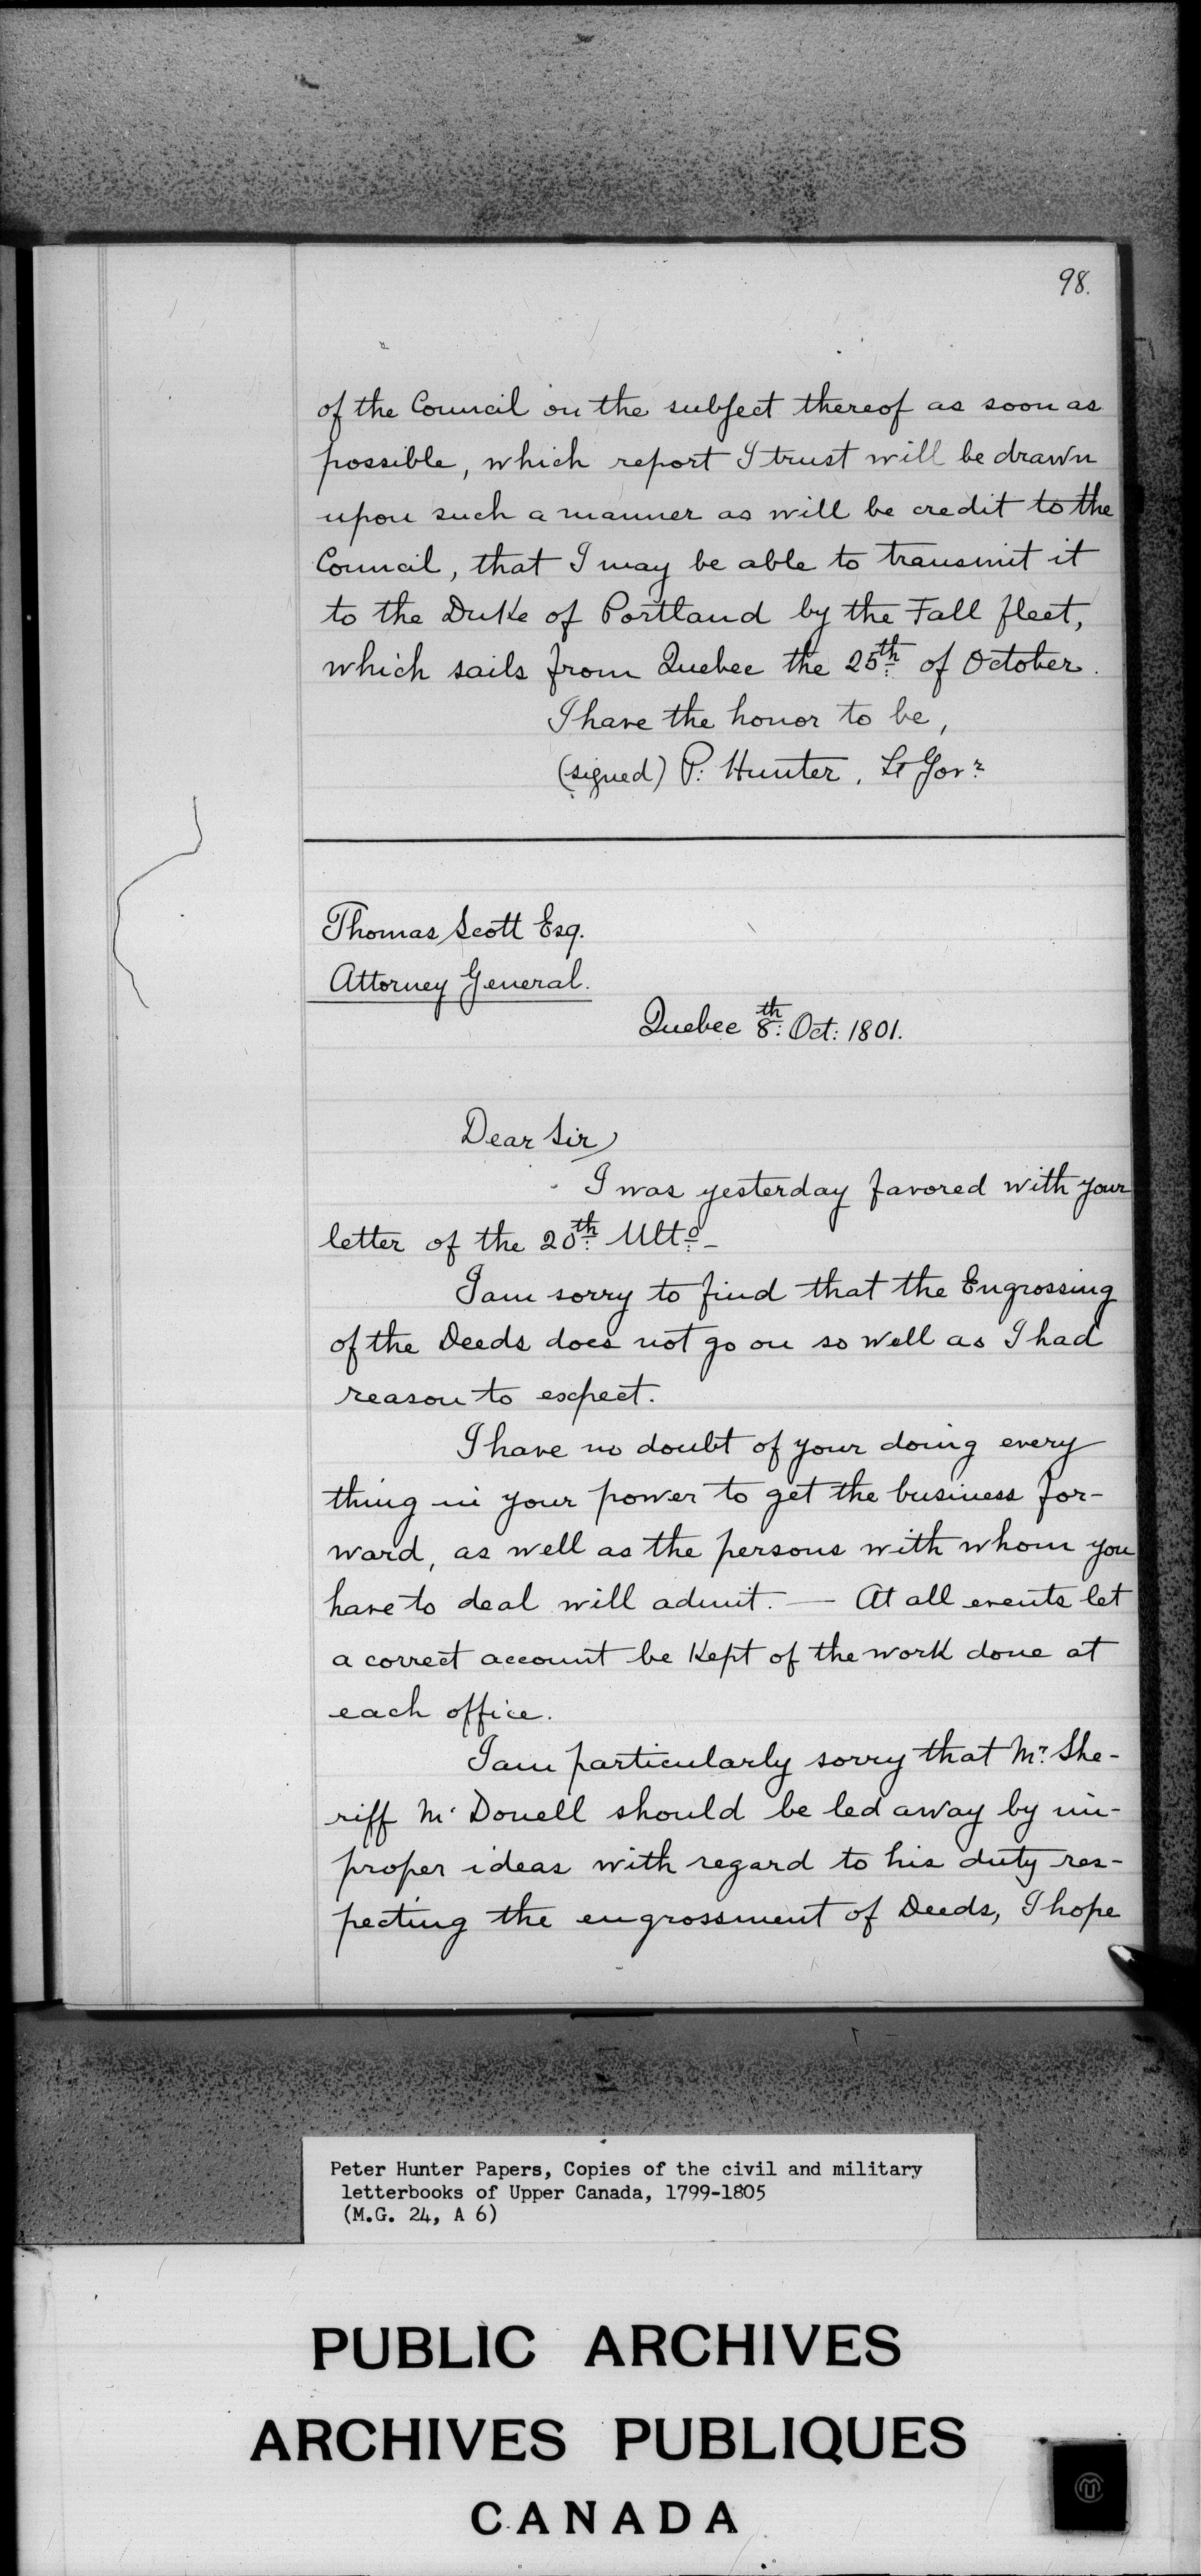 98.
of the Council on the subject thereof as soon as
possible, which report I trust will be drawn
upon such a manner as will be credit to the
Council, that I may be able to transmit it
to the Duke of Portland by the Fall fleet,
which sails from Quebec the 25th of October.
I have the honor to be,
(signed) P: Hunter, Lt Govr
Thomas Scott Esq.
Attorney General.
Quebec 8th: Oct: 1801.
Dear Sir,
I was yesterday favored with your
letter of the 20th Ulto_
I am sorry to find that the Engrossing
of the Deeds does not go on so well as I had
reason to expect.
I have no doubt of your doing every
thing in your power to get the business for-
ward, as well as the persons with whom you
have to deal will admit. — At all events let
a correct account be kept of the work done at
each office.
I am particularly sorry that Mr. She-
riff Mc Donell should be led away by im-
proper ideas with regard to his duty res-
pecting the engrossment of Deeds, I hope
Peter Hunter Papers, Copies of the civil and military
letterbooks of Upper Canada, 1799-1805
(M.G. 24, A 6)
PUBLIC ARCHIVES
ARCHIVES PUBLIQUES
CANADA